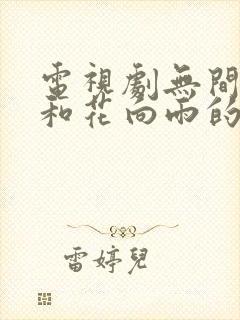 電視劇無間
和花向雨的
雷婷兒